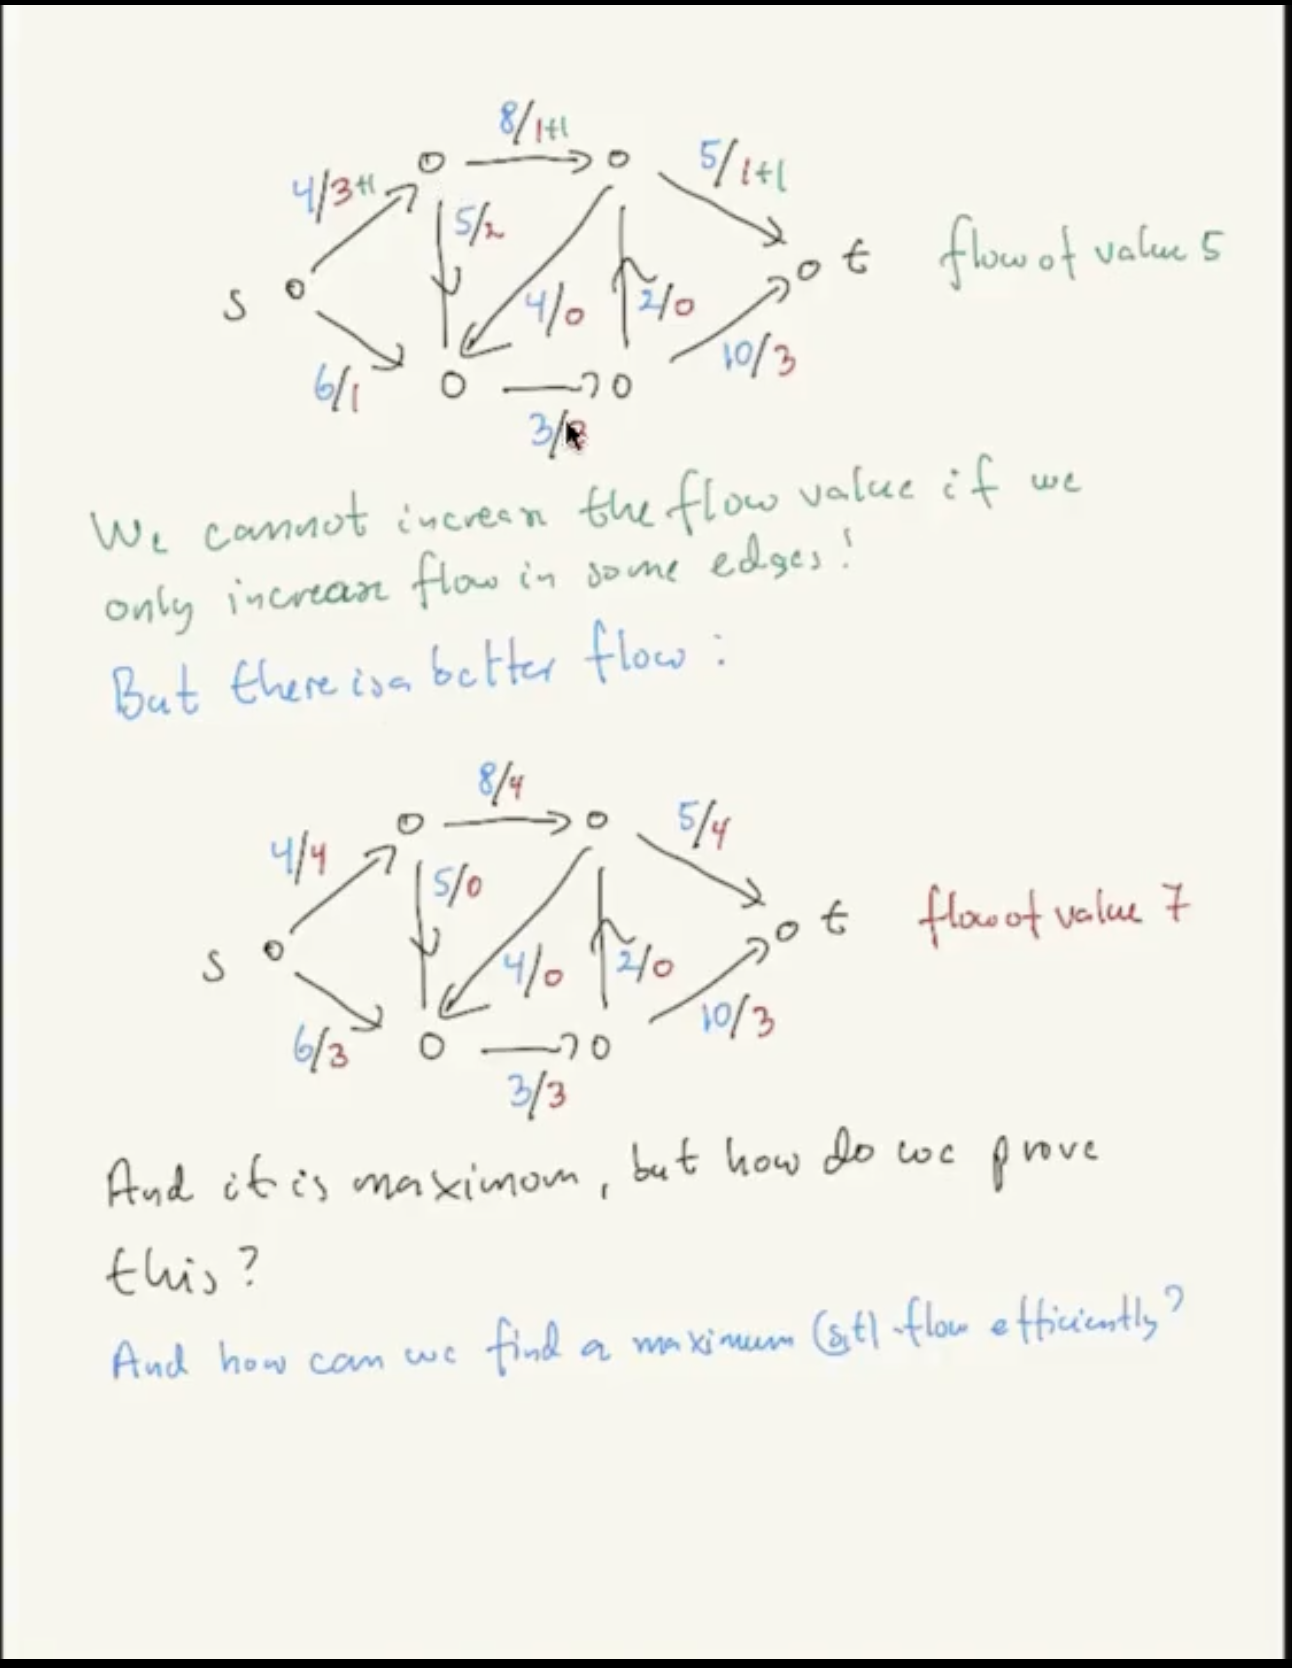 8/1+1
4/3+1
5/1+1
5/2
s
t
flow of value 5
4/0
2/0
6/1
10/3
3/
We cannot increase the flow value if we
only increase flow in some edges!
But there is a better flow:
8/4
4/4
5/4
5/0
s
t
flow of value 7
4/0
2/0
6/3
10/3
3/3
And it is maximum, but how do we prove
this?
And how can we find a maximum (s,t)-flow efficiently?